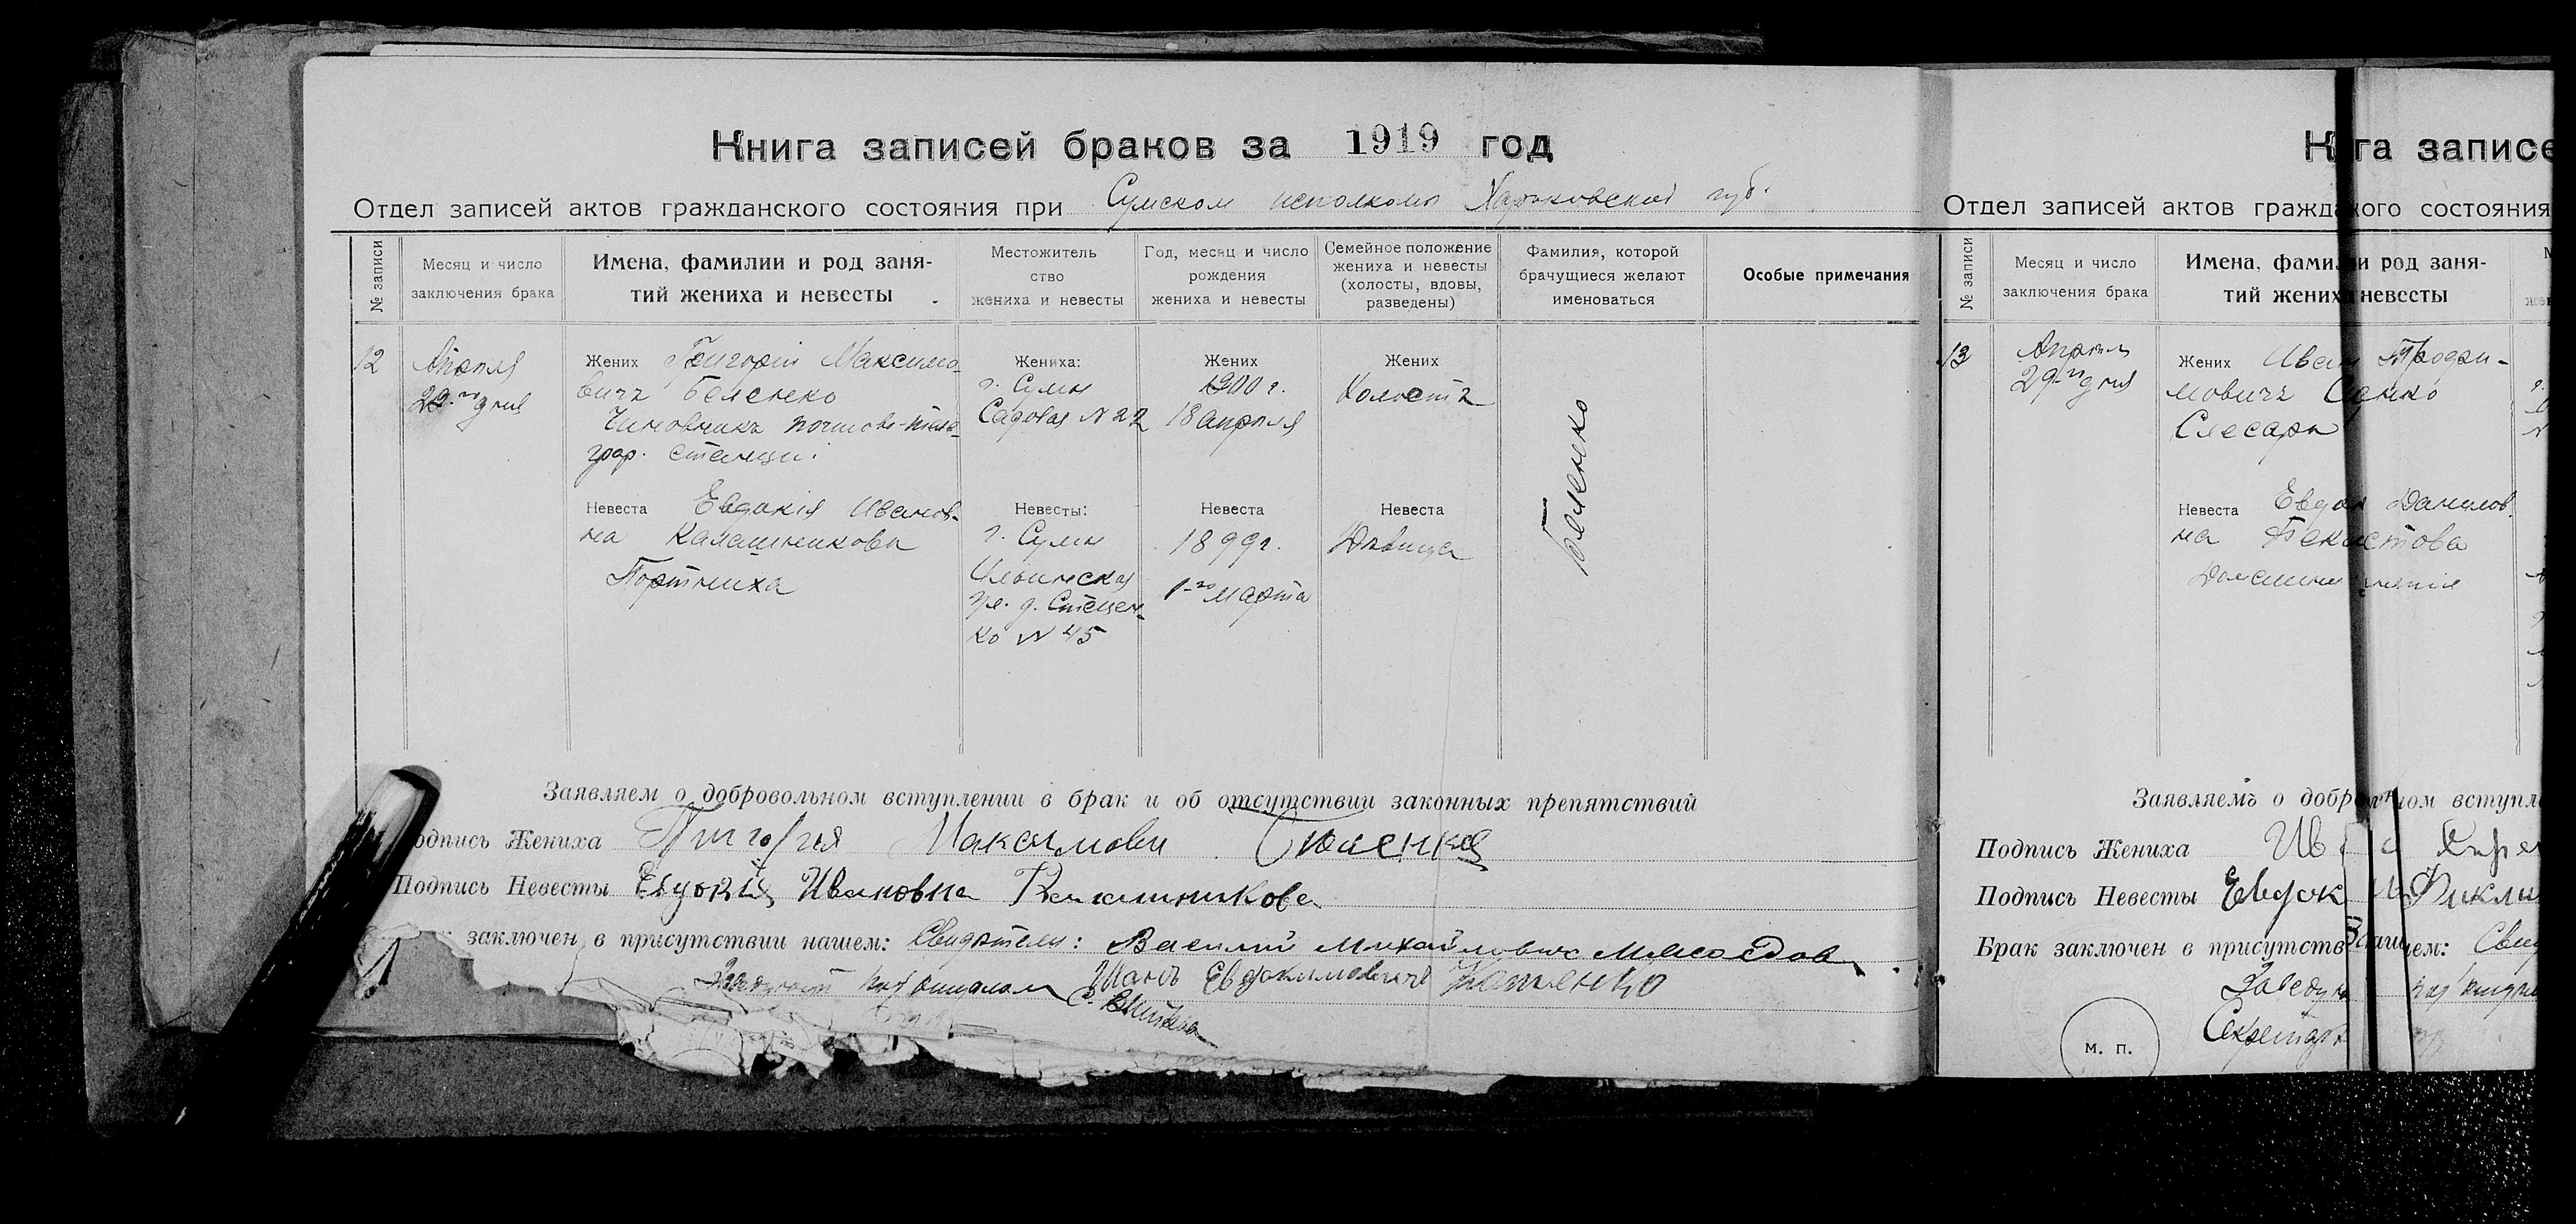 Книга записей браков за 1919 год
Отдел записей актов гражданского состояния при Сумском исполкоме Харьковской губ.
№ записи
Месяц и число
заключения брака
Имена, фамилии и род заня-
тий жениха и невесты
Местожитель
ство
жениха и невесты
Год, месяц и число
рождения
жениха и невесты
Семейное положение
жениха и невесты
(холосты, вдовы,
разведены)
Фамилия, которой
брачущиеся желают
именоваться
Особые примечания
12
Апрѣля
29-го дня
Жених Григорій Максимо-
вичъ Беленко
Чиновникъ почтово-теле-
граф. станци.
Невеста Евдокія Иванов-
на Калашникова
Портниха
Жениха:
г. Сумы
Садовая N 22
Невесты:
г. Сумы
Ильинская
ул. д. Стецен-
ко N 45
Жених
1900 г.
18 апрѣля
Невеста
1899 г.
1-го марта
Жених
Холостъ
Невеста
Дѣвица
Беленко
Заявляем о добровольном вступлении в брак и об отсутствии законных препятствий
одпись Жениха Григория Максимови
Подпись Невесты Евдокія Ивановна Калашникова
заключен в присутствии нашем: Свидѣтели: Василий Михайлович Мясоедов
под'отдѣлом Иванъ Евдокимовичъ
К га записе
Отдел записей актов гражда кого состояния
№ записи
Месяц и число
заключения брака
Имена, фамили и род заня-
тий жениха невесты
13
Апрѣль
29-го дня
Жених Иван Трофи-
мович
Слесарь
Невеста Евдок Данилов
на
Домашни нятія
Заявляемъ о добр ном вступл
Подпись Жениха Ив
Подпись Невесты Евдок
Брак заключен в присутств ем: Сви
Заведую под'отдѣ
Секретарь
м. п.